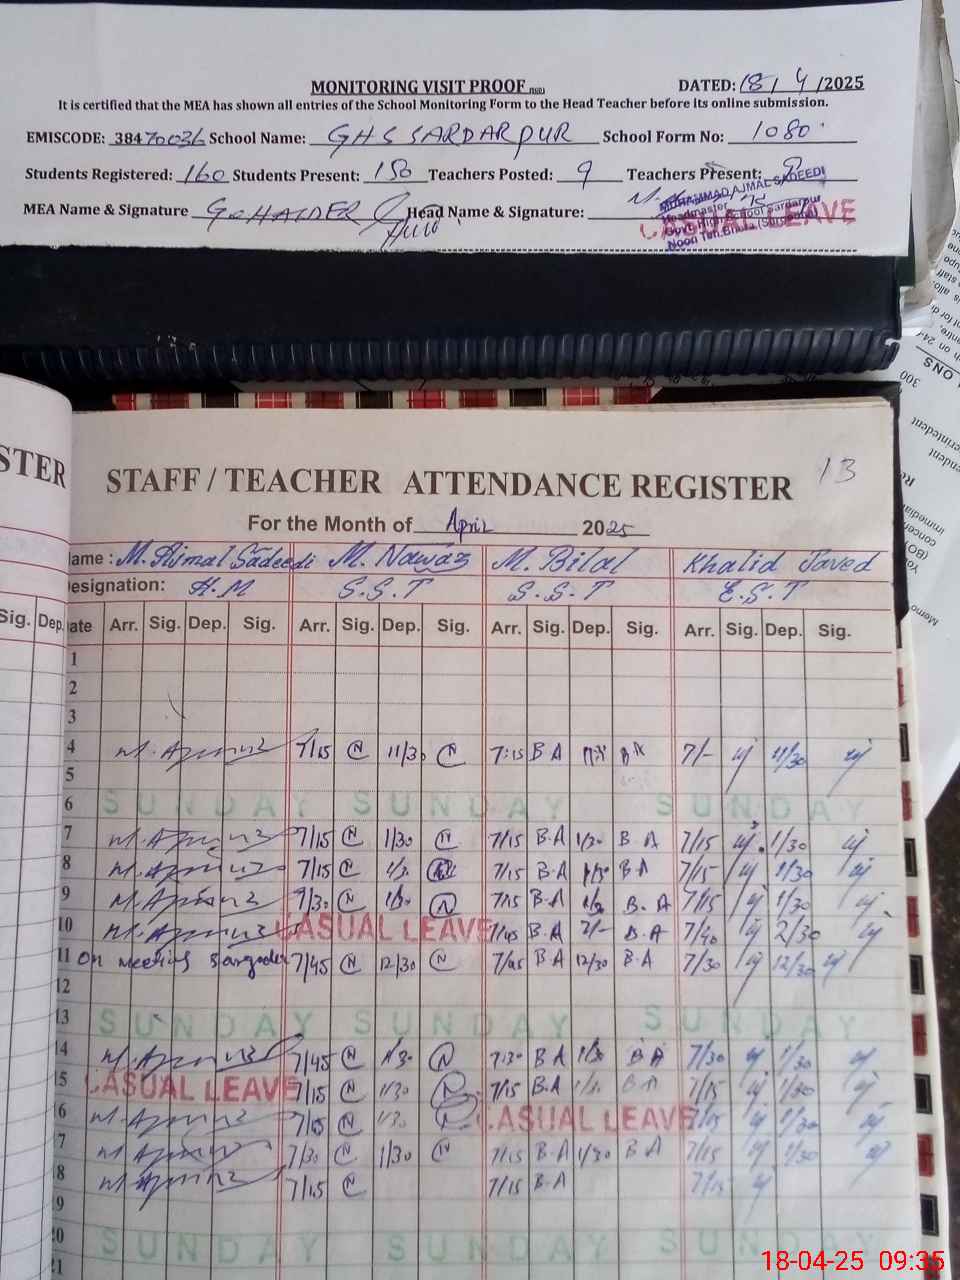 MONITORING VISIT PROOF DATED: 18/4/2025
It is certified that the MEA has shown all entries of the School Monitoring Form to the Head Teacher before its online submission.
EMISCODE: 38470036 School Name: GHS SARDARPUR School Form No: 1080
Students Registered: 160 Students Present: 150 Teachers Posted: 9 Teachers Present:
MEA Name & Signature G. HAIDER Head Name & Signature:
MUHAMMAD AJMAL SADEEDI
Headmaster
Govt. High School Sardarpur
Noon Teh. Bhera (Sargodha)
CASUAL LEAVE
STER
STAFF / TEACHER ATTENDANCE REGISTER 13
For the Month of April 2025
ame : M. Ajmal Sadeedi M. Nawaz M. Bilal Khalid Javed
esignation: H.M S.S.T S.S.T E.S.T
Sig. Dep. ate Arr. Sig. Dep. Sig. Arr. Sig. Dep. Sig. Arr. Sig. Dep. Sig. Arr. Sig. Dep. Sig.
1
2
3
4 7/15 N 11/30 N 7:15 B A B A 7/- 11/30
5
6 SUNDAY SUNDAY SUNDAY
7 7/15 N 1/30 N 7/15 B.A 1/30 B.A 7/15 1/30
8 7/15 N 1/30 7/15 B.A 1/30 B.A 7/15 1/30
9 7/30 N 1/30 N 7/15 B.A B.A 7/15 1/30
10 CASUAL LEAVE 7/45 B.A 2/- B.A 7/40 2/30
11 On meeting Sargodha 7/45 N 12/30 N 7/45 B.A 12/30 B.A 7/30 12/30
12
13 SUNDAY SUNDAY SUNDAY
14 7/45 N 1/30 N 7:30 B A 1/30 B A 7/30 1/30
15 CASUAL LEAVE 7/15 N 1/30 N 7/15 B.A 1/30 B A 7/15 1/30
6 7/15 N 1/30 N CASUAL LEAVE 7/15 1/30
7 7/30 N 1/30 N 7/15 B.A 1/30 B A 7/15 1/30
8 7/15 N 7/15 B.A 7/15
9
20 SUNDAY SUNDAY SUNDAY
21
18-04-25 09:35